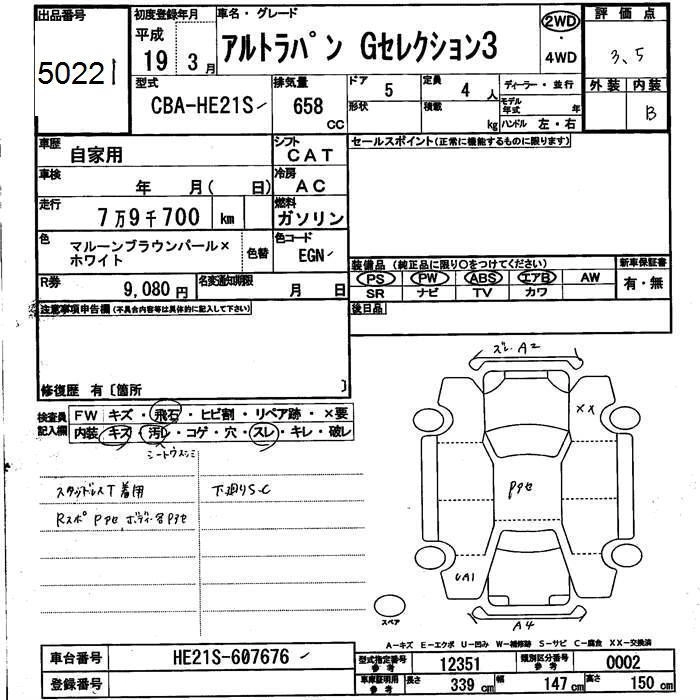 出品番号 初度登録年月 車名・グレード 2WD 評価点
平成 アルトラパン Gセレクション3 ・ 3、5
19 3月 4WD
50221 型式 排気量 ドア 5 定員 4人 ディーラー・並行 外装 内装
CBA-HE21S 658 形状 積載 モデル年式 年 B
CC kg ハンドル 左・右
車歴 自家用 シフト CAT セールスポイント(正常に機能するものに限ります)
車検 年 月( 日) 冷房 AC
走行 7万9千700 km 燃料 ガソリン
色 マルーンブラウンパール× 色替 色コード
ホワイト EGN 装備品(純正品に限り○をつけてください) 新車保証書
R券 9,080円 名変通知期限 月 日 PS PW ABS エアB AW 有・無
SR ナビ TV カワ
注意事項申告欄(不具合内容等は具体的に記入して下さい) 後日品
ズレ A2
修復歴 有〔箇所 〕
検査員 FW キズ・飛石・ヒビ割・リペア跡・×要 XX
記入欄 内装 キズ・汚レ・コゲ・穴・スレ・キレ・破レ
スタッドレスT着用 下廻りS-C
UA1
スペア A4
A-キズ E-エクボ U-凹み W-補修跡 S-サビ C-腐食 XX-交換済
車台番号 HE21S-607676 型式指定番号 参考 12351 類別区分番号 参考 0002
登録番号 車庫証明用 参考 長さ 339cm 幅 147cm 高さ 150cm